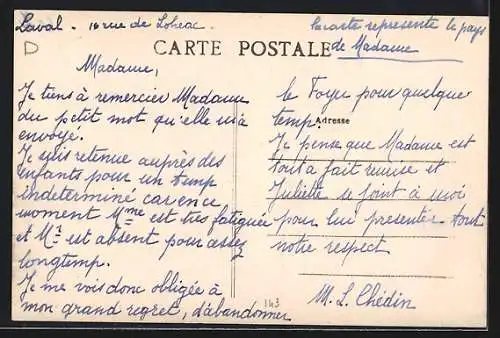 Laval - 10 rue de Lohéac.
la carte represente le pays
de Madame
D
CARTE POSTALE
Madame,
Je tiens à remercier Madame
du petit mot qu'elle m'a
envoyé.
Je suis retenue auprès des
enfants pour un temp
indeterminé car en ce
moment Mme est très fatiguée
et Mr est absent pour assez
longtemp.
Je me vois donc obligée à
mon grand regret, d'abandonner
le Foyer pour quelque
temp.
Adresse
Je pense que Madame est
tout a fait remise et
Juliette se joint à moi
pour lui presenter tout
notre respect
M. L. Chédin
143